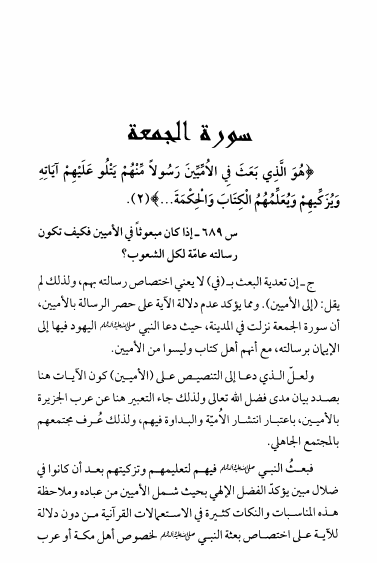 سورة الجمعة
﴿هُوَ الَّذِي بَعَثَ فِي الأُمِّيِّينَ رَسُولاً مِّنْهُمْ يَتْلُو عَلَيْهِمْ آيَاتِهِ
وَيُزَكِّيهِمْ وَيُعَلِّمُهُمُ الْكِتَابَ وَالْحِكْمَةَ...﴾(٢).
س ٦٨٩ ـ إذا كان مبعوثاً في الأميين فكيف تكون
رسالته عامّة لكل الشعوب؟
ج ـ إن تعدية البعث بـ(في) لا يعني اختصاص رسالته بهم، ولذلك لم
يقل: (إلى الأميين). ومما يؤكد عدم دلالة الآية على حصر الرسالة بالأميين،
أن سورة الجمعة نزلت في المدينة، حيث دعا النبي اليهود فيها إلى
الإيمان برسالته، مع أنهم أهل كتاب وليسوا من الأميين.
ولعلّ الذي دعا إلى التنصيص على (الأميين) كون الآيات هنا
بصدد بيان مدى فضل الله تعالى ولذلك جاء التعبير هنا عن عرب الجزيرة
بالأميين، باعتبار انتشار الأميّة والبداوة فيهم، ولذلك عُرف مجتمعهم
بالمجتمع الجاهلي.
فبعثُ النبي فيهم لتعليمهم وتزكيتهم بعد أن كانوا في
ضلال مبين يؤكدّ الفضل الإلهي بحيث شمل الأميين من عباده وملاحظة
هذه المناسبات والنكات كثيرة في الاستعمالات القرآنية من دون دلالة
للآية على اختصاص بعثة النبي لخصوص أهل مكة أو عرب